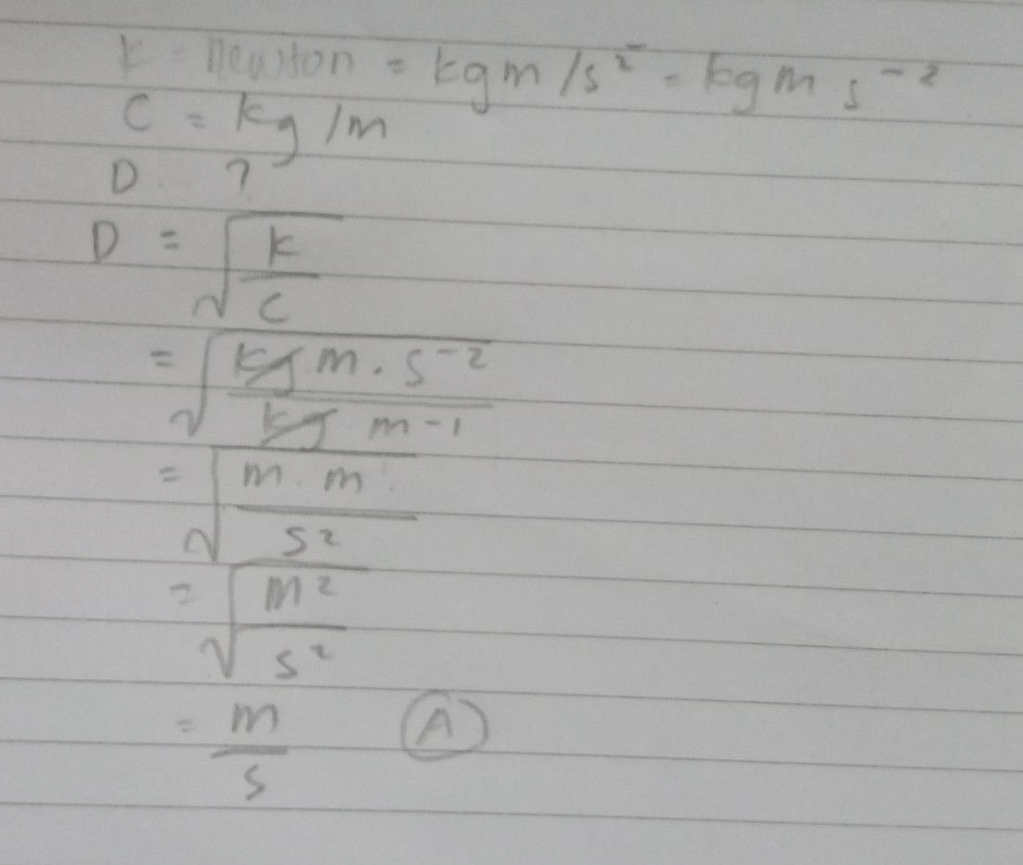 K = Newton = kgm/s² = kgm s⁻²
C = kg/m
D ... ?
D = √(K/C)
= √(kg m · s⁻² / kg m-1)
= √(m · m / s²)
= √(m² / s²)
= m/s (A)